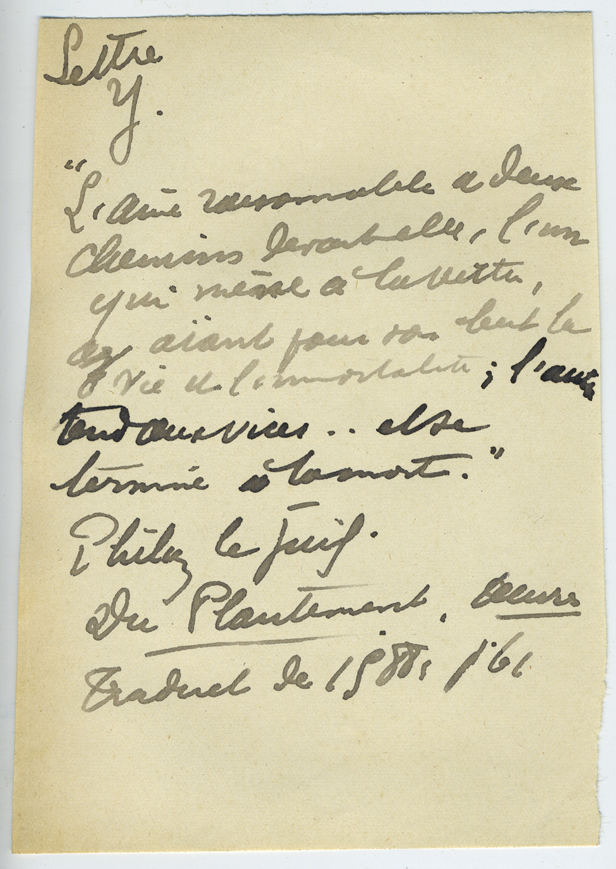 Lettre
Y.
"L'âme raisonnable a deux
chemins devant elle, l'un
qui mène à la vertu,
ayant pour son but la
Vie et l'immortalité ; l'autre
tend aux vices .. et se
termine à la mort."
Philon le Juif.
Du Plantement, Œuvre
Traduct de 1588, p. 61